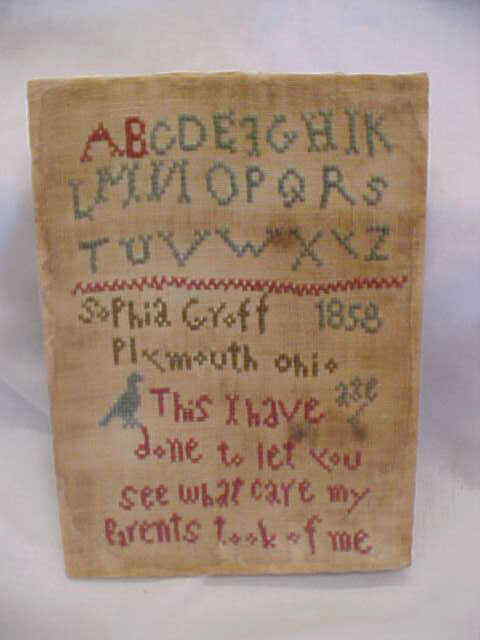 ABCDEFGHIK
LMNOPQRS
TUVWXYZ
Sophia Groff 1858
Plymouth ohio
age
This I have
done to let you
see what care my
Parents took of me